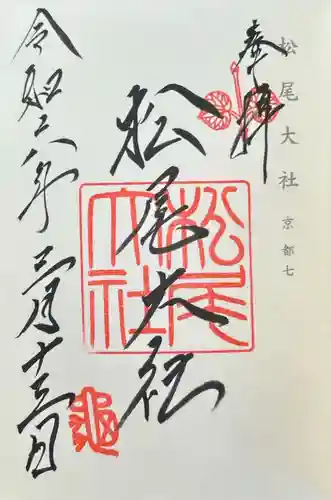 松尾大社 京都七
奉拝
松尾大社
松尾大社
令和六年三月十三日